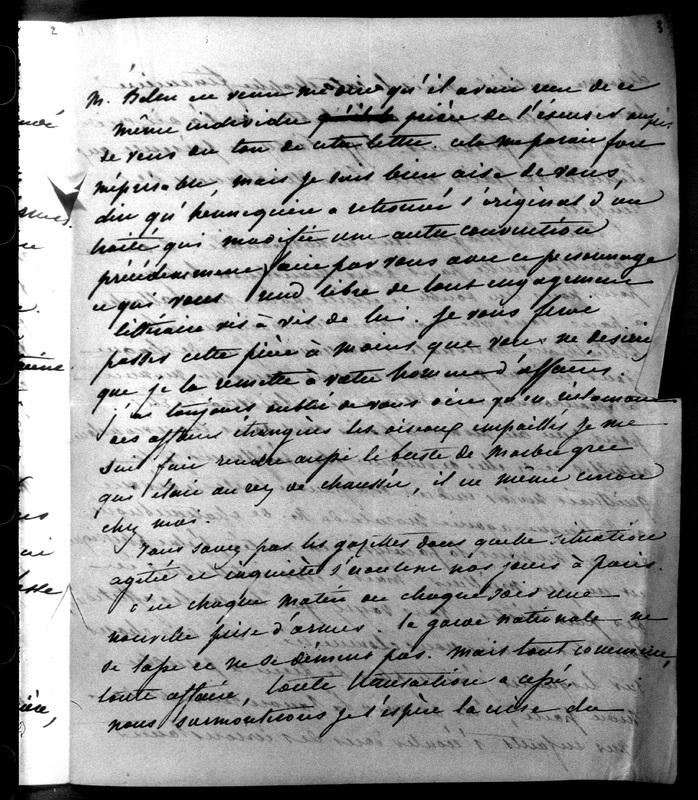 2
3
M. Belin est venu me dire qu'il avait reçu de ce
même individu prière de l'excuser auprès
de vous du ton de cette lettre. cela me parait fort
méprisable, mais je suis bien aise de vous
dire qu'hennequin a retrouvé l'original d'un
traité qui modifie une autre convention
précédemment faite par vous avec ce personnage
ce qui vous rend libre de tout engagement
littéraire vis à vis de lui. je vous ferai
passer cette pièce à moins que vous ne desiriez
que je la remette à votre homme d'affaires.
j'ai toujours oublié de vous dire qu'en réclamant
ces affaires étrangères les oiseaux empaillés je me
suis fait rendre aussi le buste de marbre grec
qui était au rez de chaussée, il est même encore
chez moi.
Vous savez par les gazettes dans quelle situation
agitée et inquiète s'écoulent nos jours à paris.
c'est chaque matin ou chaque soir une
nouvelle prise d'armes. la garde nationale ne
se lasse et ne se dément pas. mais tout commerce,
toute affaire, toute transaction a cessé.
nous surmonterons je l'espère la crise du